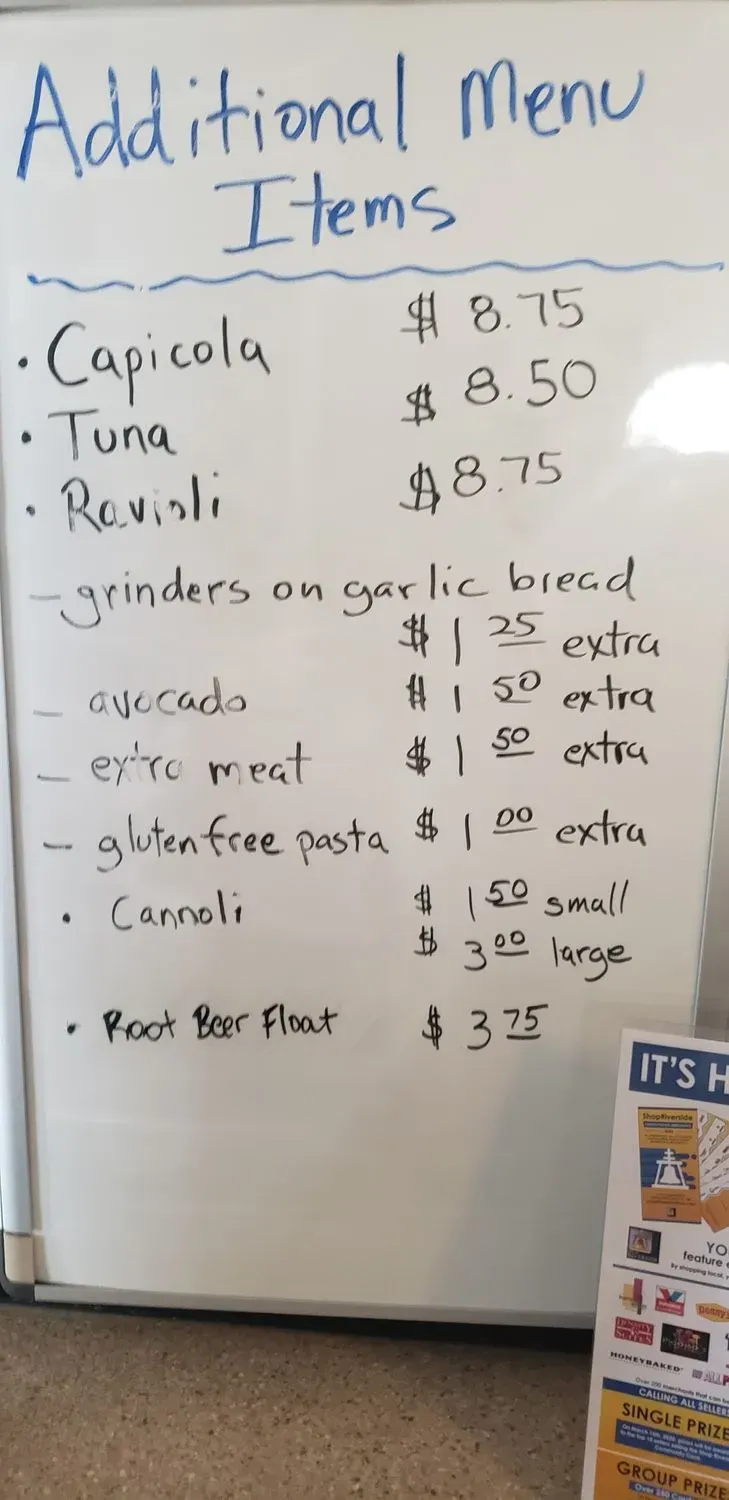 Additional Menu
Items
• Capicola $ 8.75
• Tuna $ 8.50
• Ravioli $ 8.75
- grinders on garlic bread
$ 1 25 extra
- avocado $ 1 50 extra
- extra meat $ 1 50 extra
- gluten free pasta $ 1 00 extra
• Cannoli $ 1 50 small
$ 3 00 large
• Root Beer Float $ 3 75
IT'S H
ShopRiverside
YO
feature
by shopping local,
HONEYBAKED
Over 200 merchants that can
CALLING ALL SELLERS
SINGLE PRIZE
GROUP PRIZE